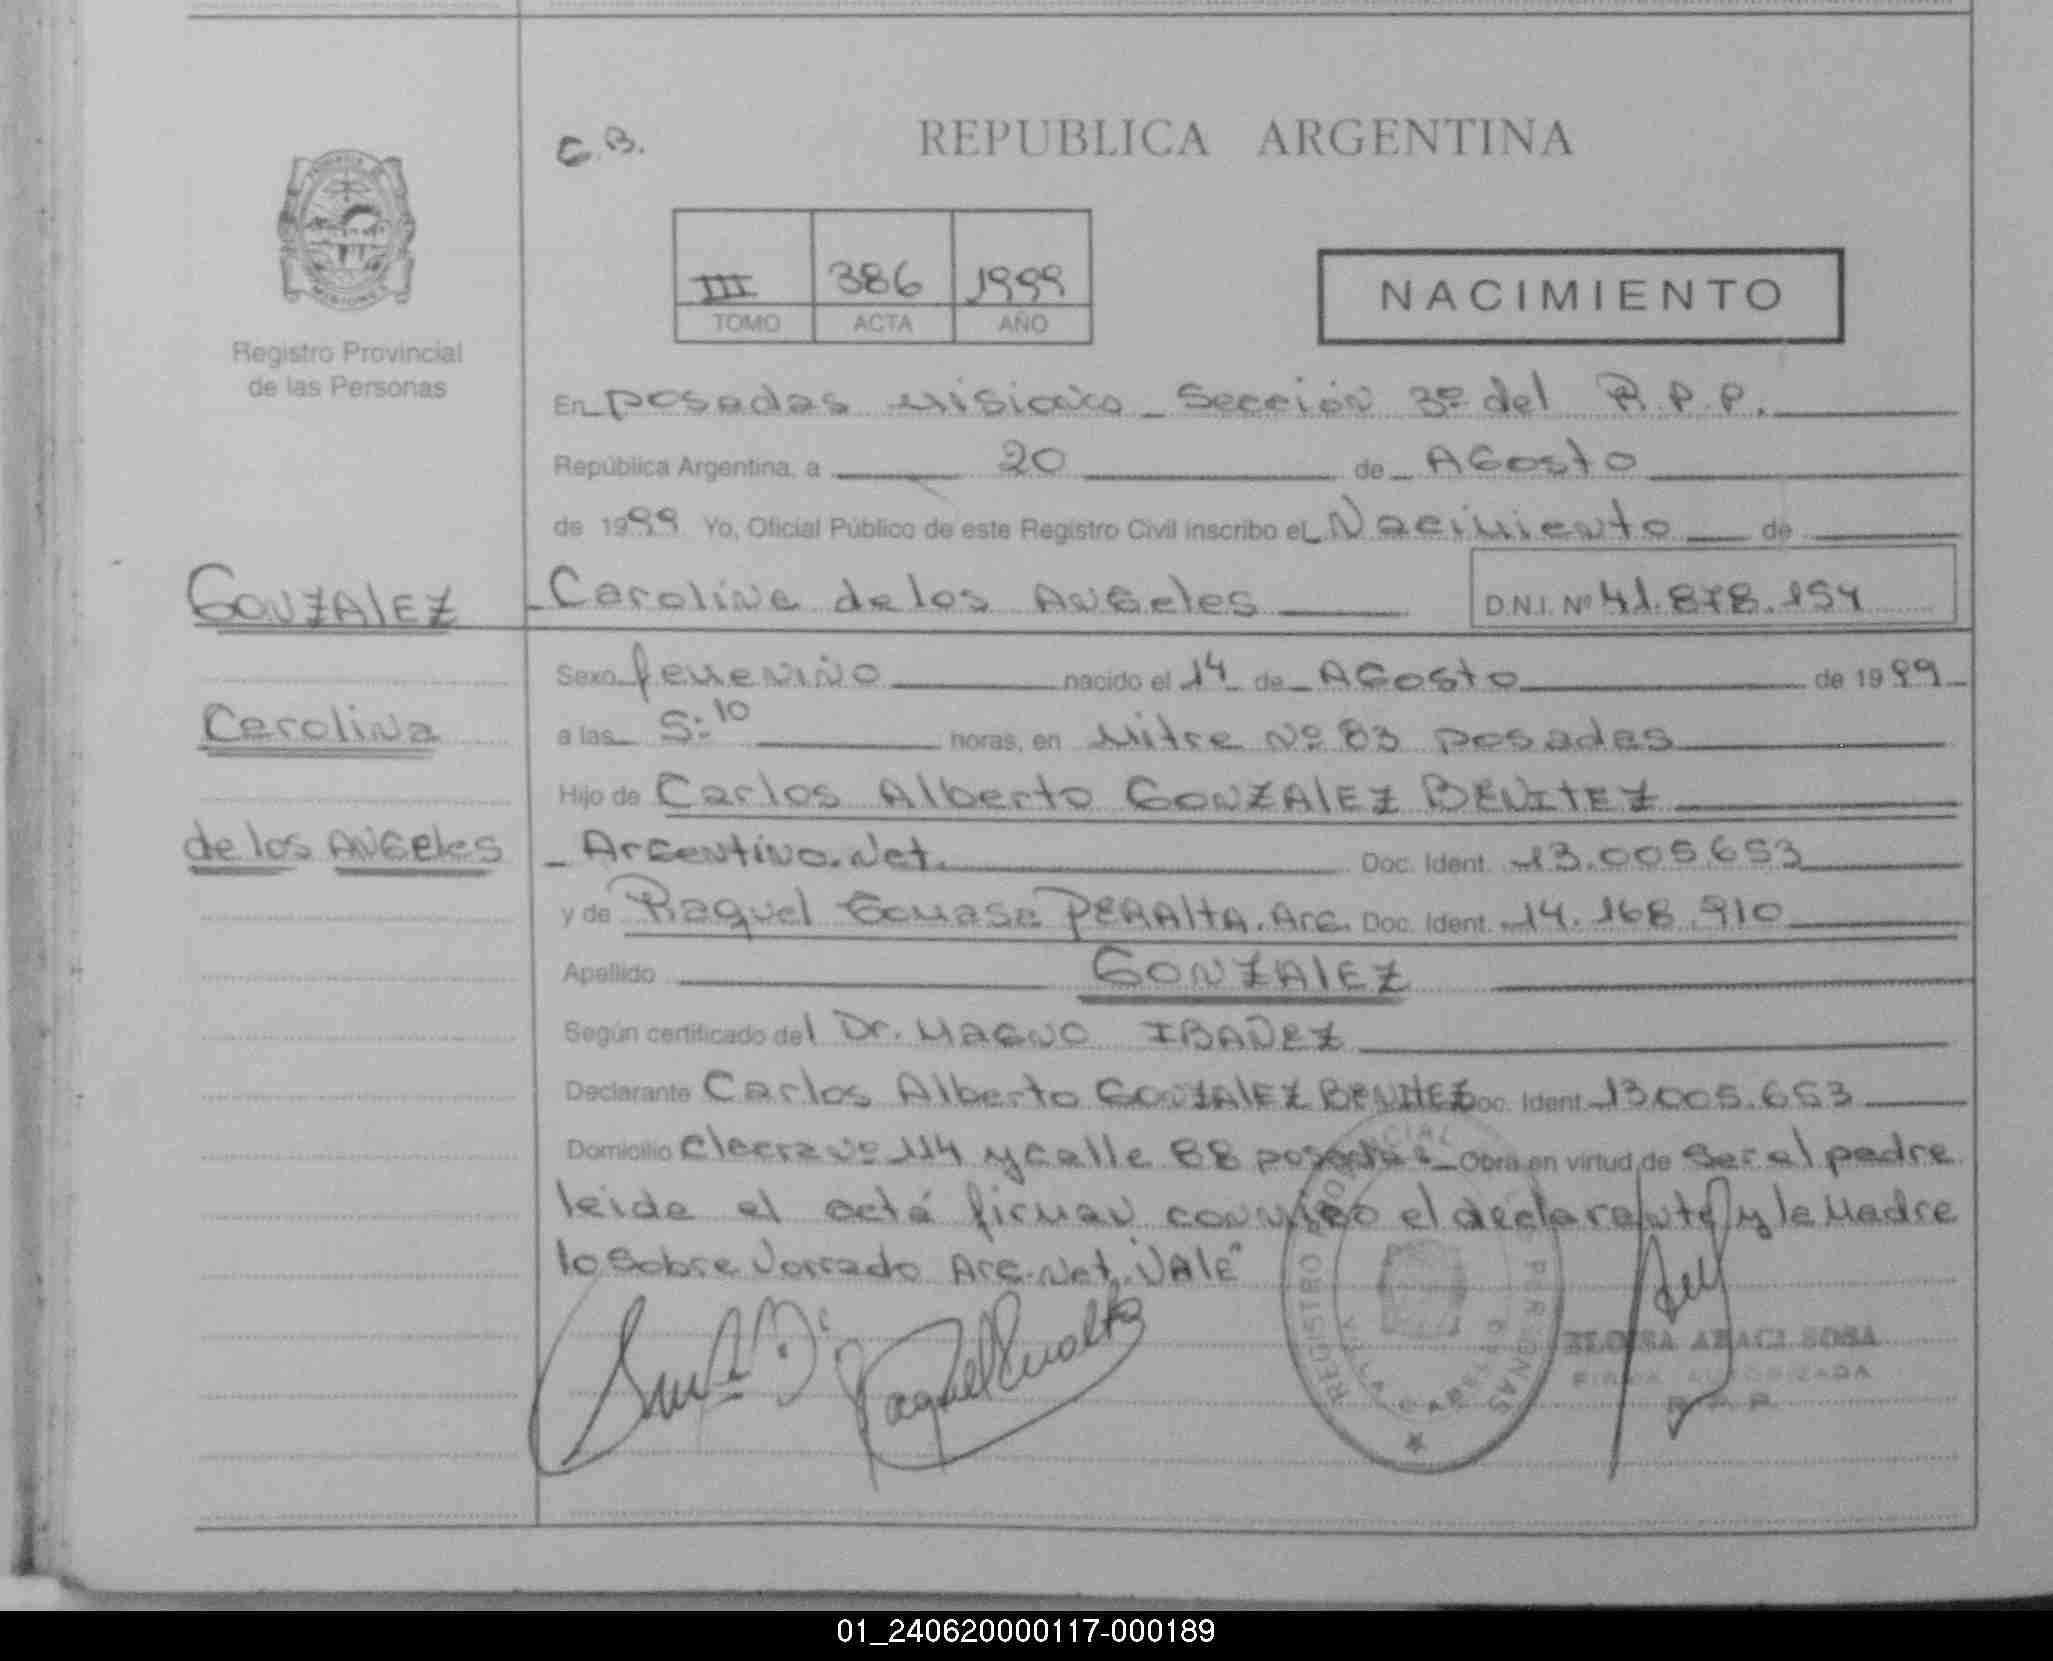 C.B.
REPUBLICA ARGENTINA
III 386 1999
TOMO ACTA AÑO
NACIMIENTO
Registro Provincial
de las Personas
En posadas Misiones Sección 3º del R.P.P.
República Argentina, a 20 de AGosto
de 1999 Yo, Oficial Público de este Registro Civil inscribo el Nacimiento de
GONZALEZ
Carolina de los ANGeles D.N.I. Nº 41.878.154
Sexo femenino nacido el 14 de AGosto de 1999
Carolina
a las 5:10 horas, en Mitre Nº 83 posadas
Hijo de Carlos Alberto GONZALEZ BENITEZ
de los ANGeles
Argentino.Nat. Doc. Ident. 13.005.653
y de Raquel PERALTA. Arg. Doc. Ident. 14.168.910
Apellido GONZALEZ
Según certificado del Dr. MAGNO IBAÑEZ
Declarante Carlos Alberto GONZALEZ BENITEZ Doc. Ident. 13.005.653
Domicilio Chacra Nº 114 y calle 88 posadas Obra en virtud de Ser el padre
leida el acta firman conmigo el declarante y la Madre
lo Sobre borrado Arg.Nat."VALE"
Raquel Peralta
REGISTRO PROVINCIAL DE LAS PERSONAS
ELOISA ABACI SOSA
FIRMA AUTORIZADA
R.P.P.
01_240620000117-000189